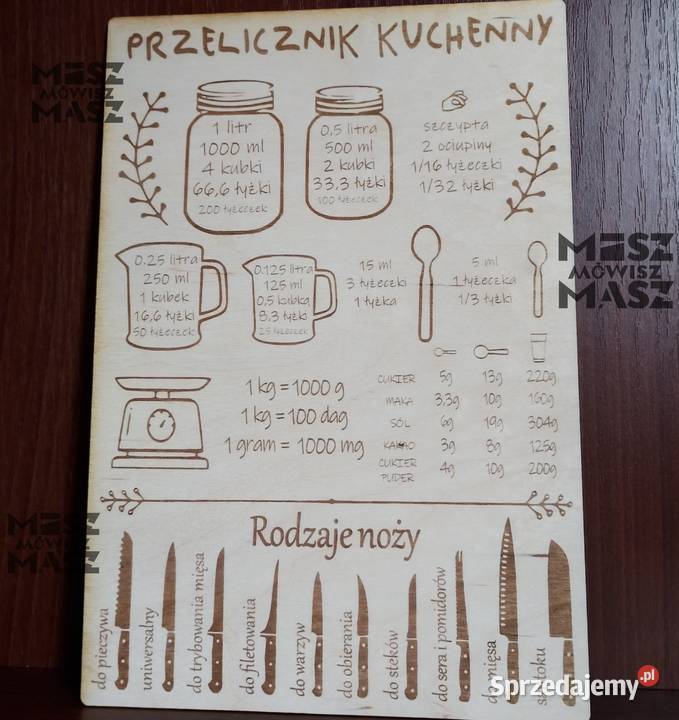 PRZELICZNIK KUCHENNY
MESZ
MÓWISZ
MASZ
1 litr
1000 ml
4 kubki
66,6 łyżki
200 łyżeczek
0,5 litra
500 ml
2 kubki
33,3 łyżki
100 łyżeczek
szczypta
2 ociupiny
1/16 łyżeczki
1/32 łyżki
0,25 litra
250 ml
1 kubek
16,6 łyżki
50 łyżeczek
0,125 litra
125 ml
0,5 kubka
8,3 łyżki
25 łyżeczek
15 ml
3 łyżeczki
1 łyżka
5 ml
1 łyżeczka
1/3 łyżki
MESZ
MÓWISZ
MASZ
1 kg = 1000 g
1 kg = 100 dag
1 gram = 1000 mg
CUKIER 5g 13g 220g
MĄKA 3,3g 10g 160g
SÓL 6g 19g 304g
KAKAO 3g 8g 125g
CUKIER PUDER 4g 10g 200g
MESZ
MÓWISZ
MASZ
Rodzaje noży
do pieczywa
uniwersalny
do trybowania mięsa
do filetowania
do warzyw
do obierania
do steków
do sera i pomidorów
do mięsa
Sprzedajemy.pl